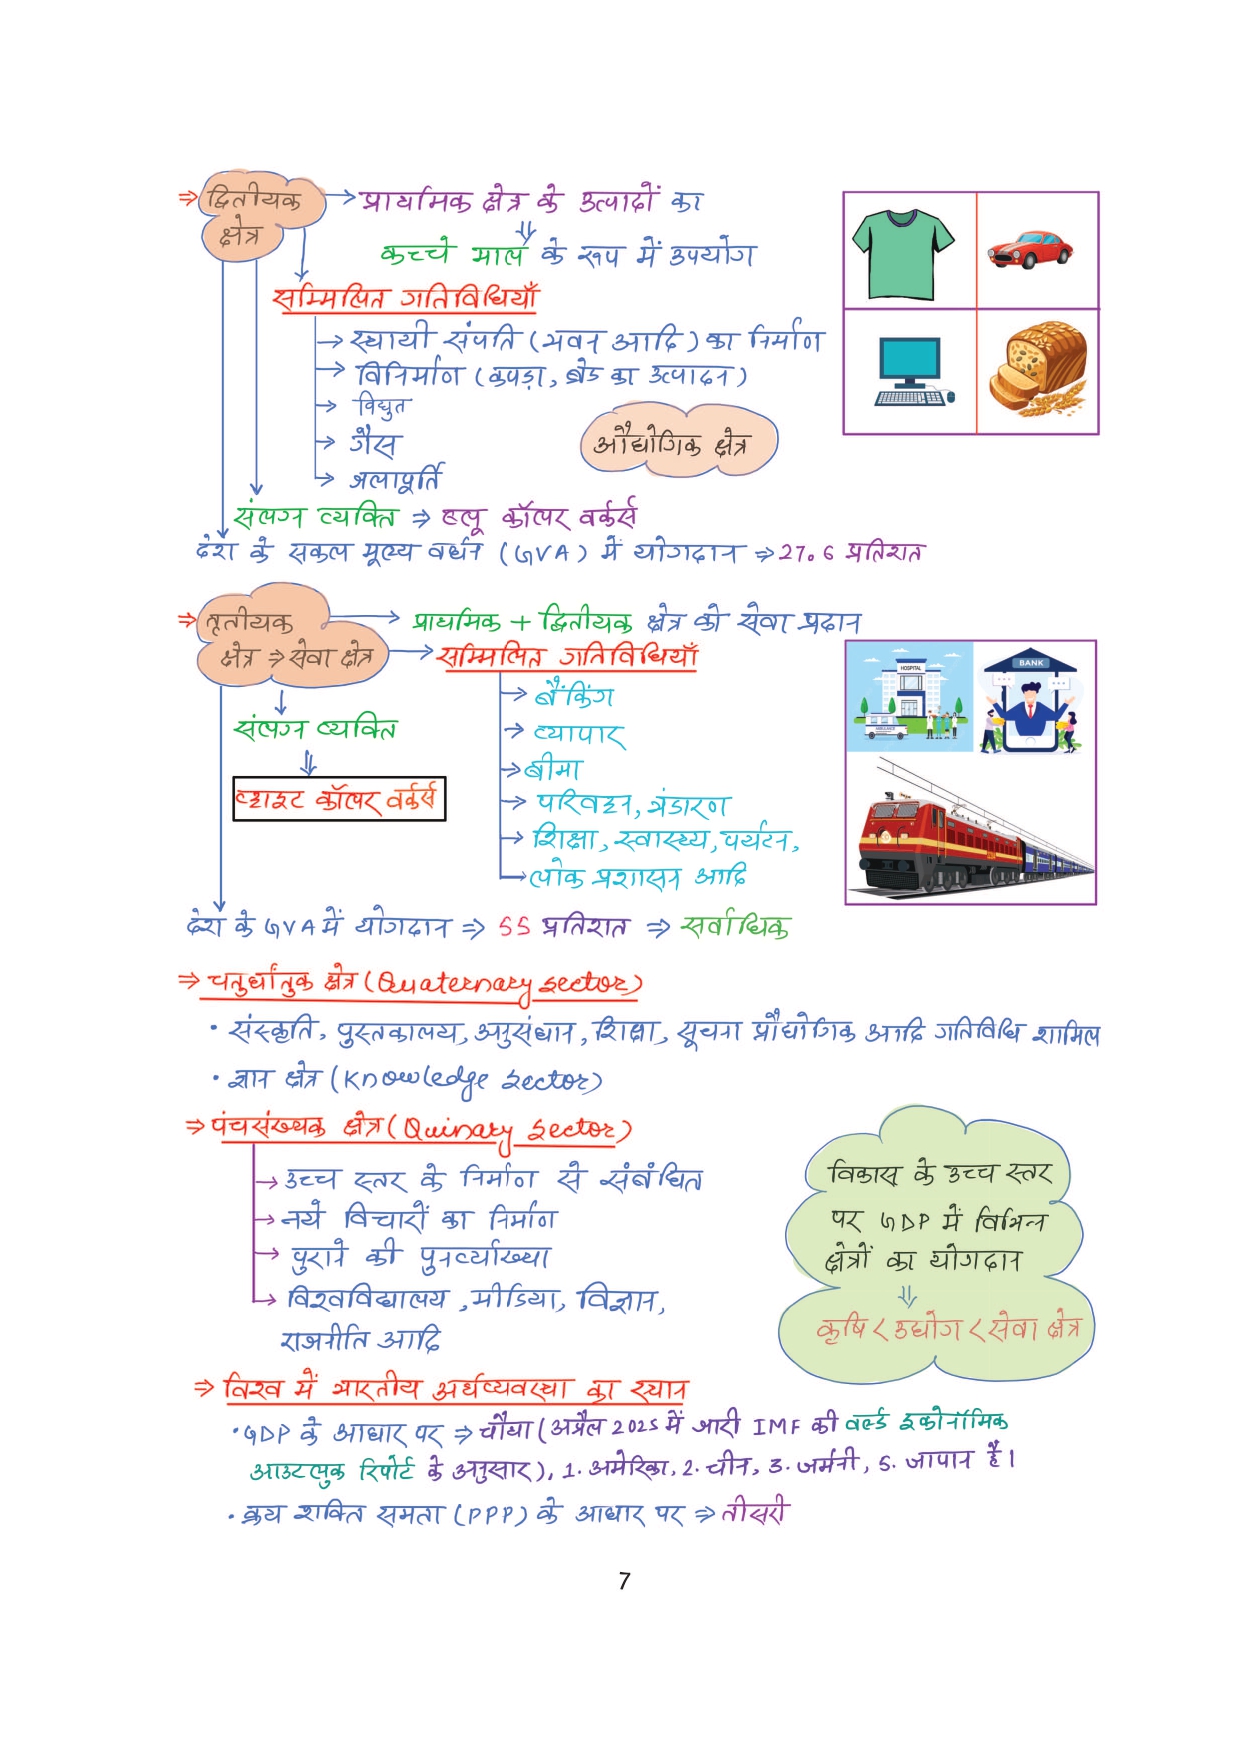 ⇒ द्वितीयक → प्राथमिक क्षेत्र के उत्पादों का
क्षेत्र
⇓
कच्चे माल के रूप में उपयोग
सम्मिलित गतिविधियाँ
→ स्थायी संपत्ति (भवन आदि) का निर्माण
→ विनिर्माण (कपड़ा, ब्रेड का उत्पादन)
→ विद्युत
→ गैस
औद्योगिक क्षेत्र
→ जलापूर्ति
संलग्न व्यक्ति ⇒ ब्लू कॉलर वर्कर्स
देश के सकल मूल्य वर्धन (GVA) में योगदान ⇒ 27.6 प्रतिशत
⇒ तृतीयक → प्राथमिक + द्वितीयक क्षेत्र को सेवा प्रदान
क्षेत्र ⇒ सेवा क्षेत्र → सम्मिलित गतिविधियाँ
HOSPITAL
BANK
AMBULANCE
→ बैंकिंग
संलग्न व्यक्ति
→ व्यापार
⇓
→ बीमा
व्हाइट कॉलर वर्कर्स
→ परिवहन, भंडारण
→ शिक्षा, स्वास्थ्य, पर्यटन,
→ लोक प्रशासन आदि
देश के GVA में योगदान ⇒ 55 प्रतिशत ⇒ सर्वाधिक
⇒ चतुर्थांतुक क्षेत्र (Quaternary sector)
• संस्कृति, पुस्तकालय, अनुसंधान, शिक्षा, सूचना प्रौद्योगिक आदि गतिविधि शामिल
• ज्ञान क्षेत्र (Knowledge sector)
⇒ पंचसंख्यक क्षेत्र (Quinary sector)
→ उच्च स्तर के निर्माण से संबंधित
→ नये विचारों का निर्माण
→ पुराने की पुनर्व्याख्या
→ विश्वविद्यालय, मीडिया, विज्ञान,
राजनीति आदि
विकास के उच्च स्तर
पर GDP में विभिन्न
क्षेत्रों का योगदान
⇓
कृषि < उद्योग < सेवा क्षेत्र
⇒ विश्व में भारतीय अर्थव्यवस्था का स्थान
• GDP के आधार पर ⇒ चौथा (अप्रैल 2025 में जारी IMF की वर्ल्ड इकोनॉमिक
आउटलुक रिपोर्ट के अनुसार), 1. अमेरिका, 2. चीन, 3. जर्मनी, 5. जापान है।
• क्रय शक्ति समता (PPP) के आधार पर ⇒ तीसरी
7